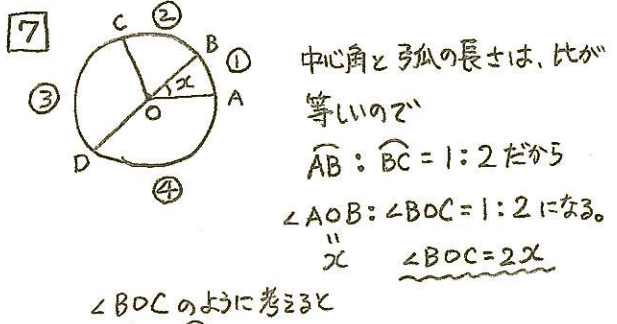 7
C
②
B
①
x
A
③
O
D
④
中心角と弧の長さは、比が
等しいので
AB : BC = 1 : 2 だから
∠AOB : ∠BOC = 1 : 2 になる。
〃
x ∠BOC = 2x
∠BOC のように考えると